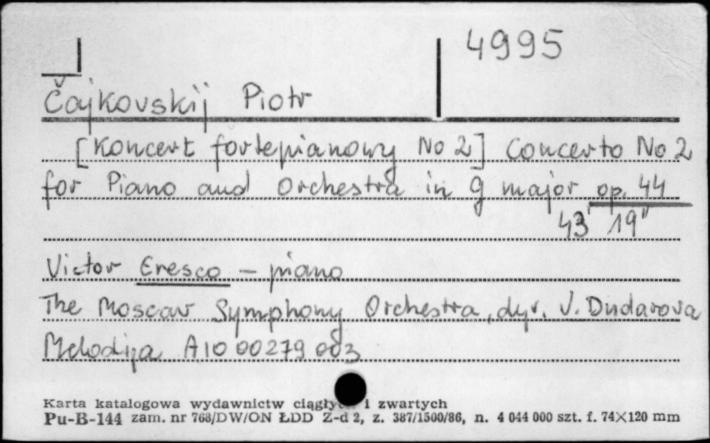 4995
Čajkovskij Piotr
[Koncert fortepianowy No 2] Concerto No 2
for Piano and Orchestra in g major op. 44
43' 19"
Victor Eresco – piano
The Moscow Symphony Orchestra, dyr. V. Dudarova
Melodija A10 00279 003
Karta katalogowa wydawnictw ciągłyc i zwartych
Pu-B-144 zam. nr 768/DW/ON ŁDD Z-d 2, z. 387/1500/86, n. 4 044 000 szt. f. 74×120 mm